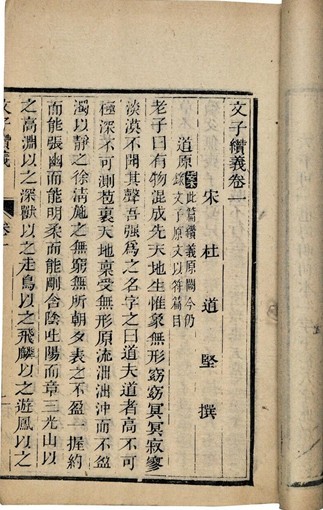 文子纘義卷一
宋杜道堅撰
道原 案此篇纘義原闕今仍錄文子原文以符篇目
老子曰有物混成先天地生惟象無形窈窈冥冥寂寥
淡漠不聞其聲吾强爲之名字之曰道夫道者高不可
極深不可測苞裹天地稟受無形原流泏泏沖而不盈
濁以靜之徐淸施之無窮無所朝夕表之不盈一握約
而能張幽而能明柔而能剛含陰吐陽而章三光山以
之高淵以之深獸以之走鳥以之飛麟以之遊鳳以之
文子纘義
卷一